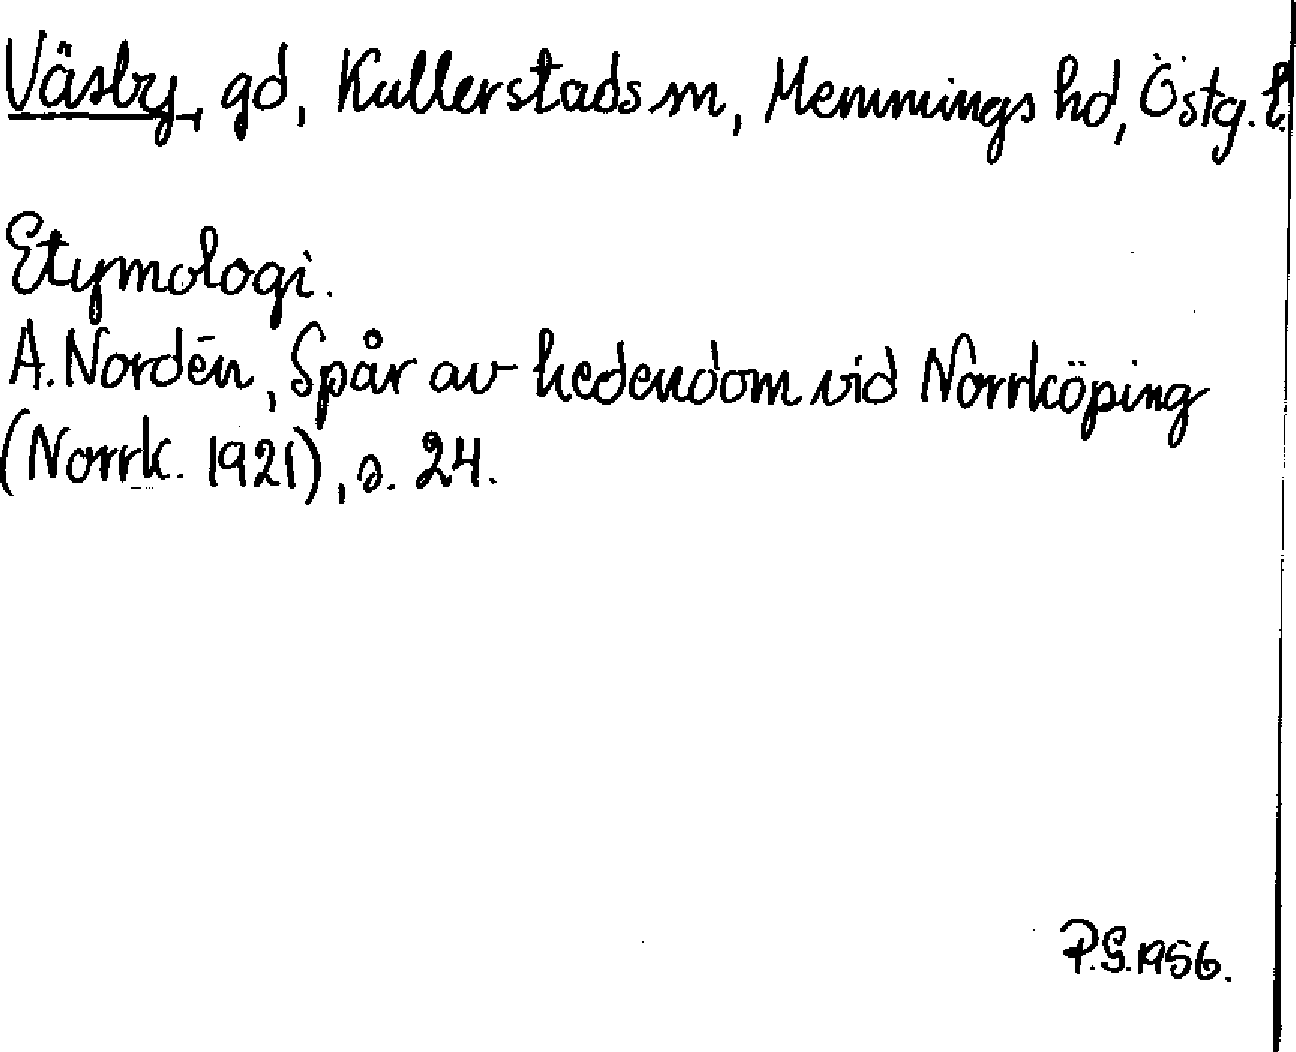 Väsby, gd, Kullerstads sn, Memmings hd, Östg. l.
Etymologi.
A. Nordén, Spår av hedendom vid Norrköping
(Norrk. 1921), s. 24.
P.G. 1956.